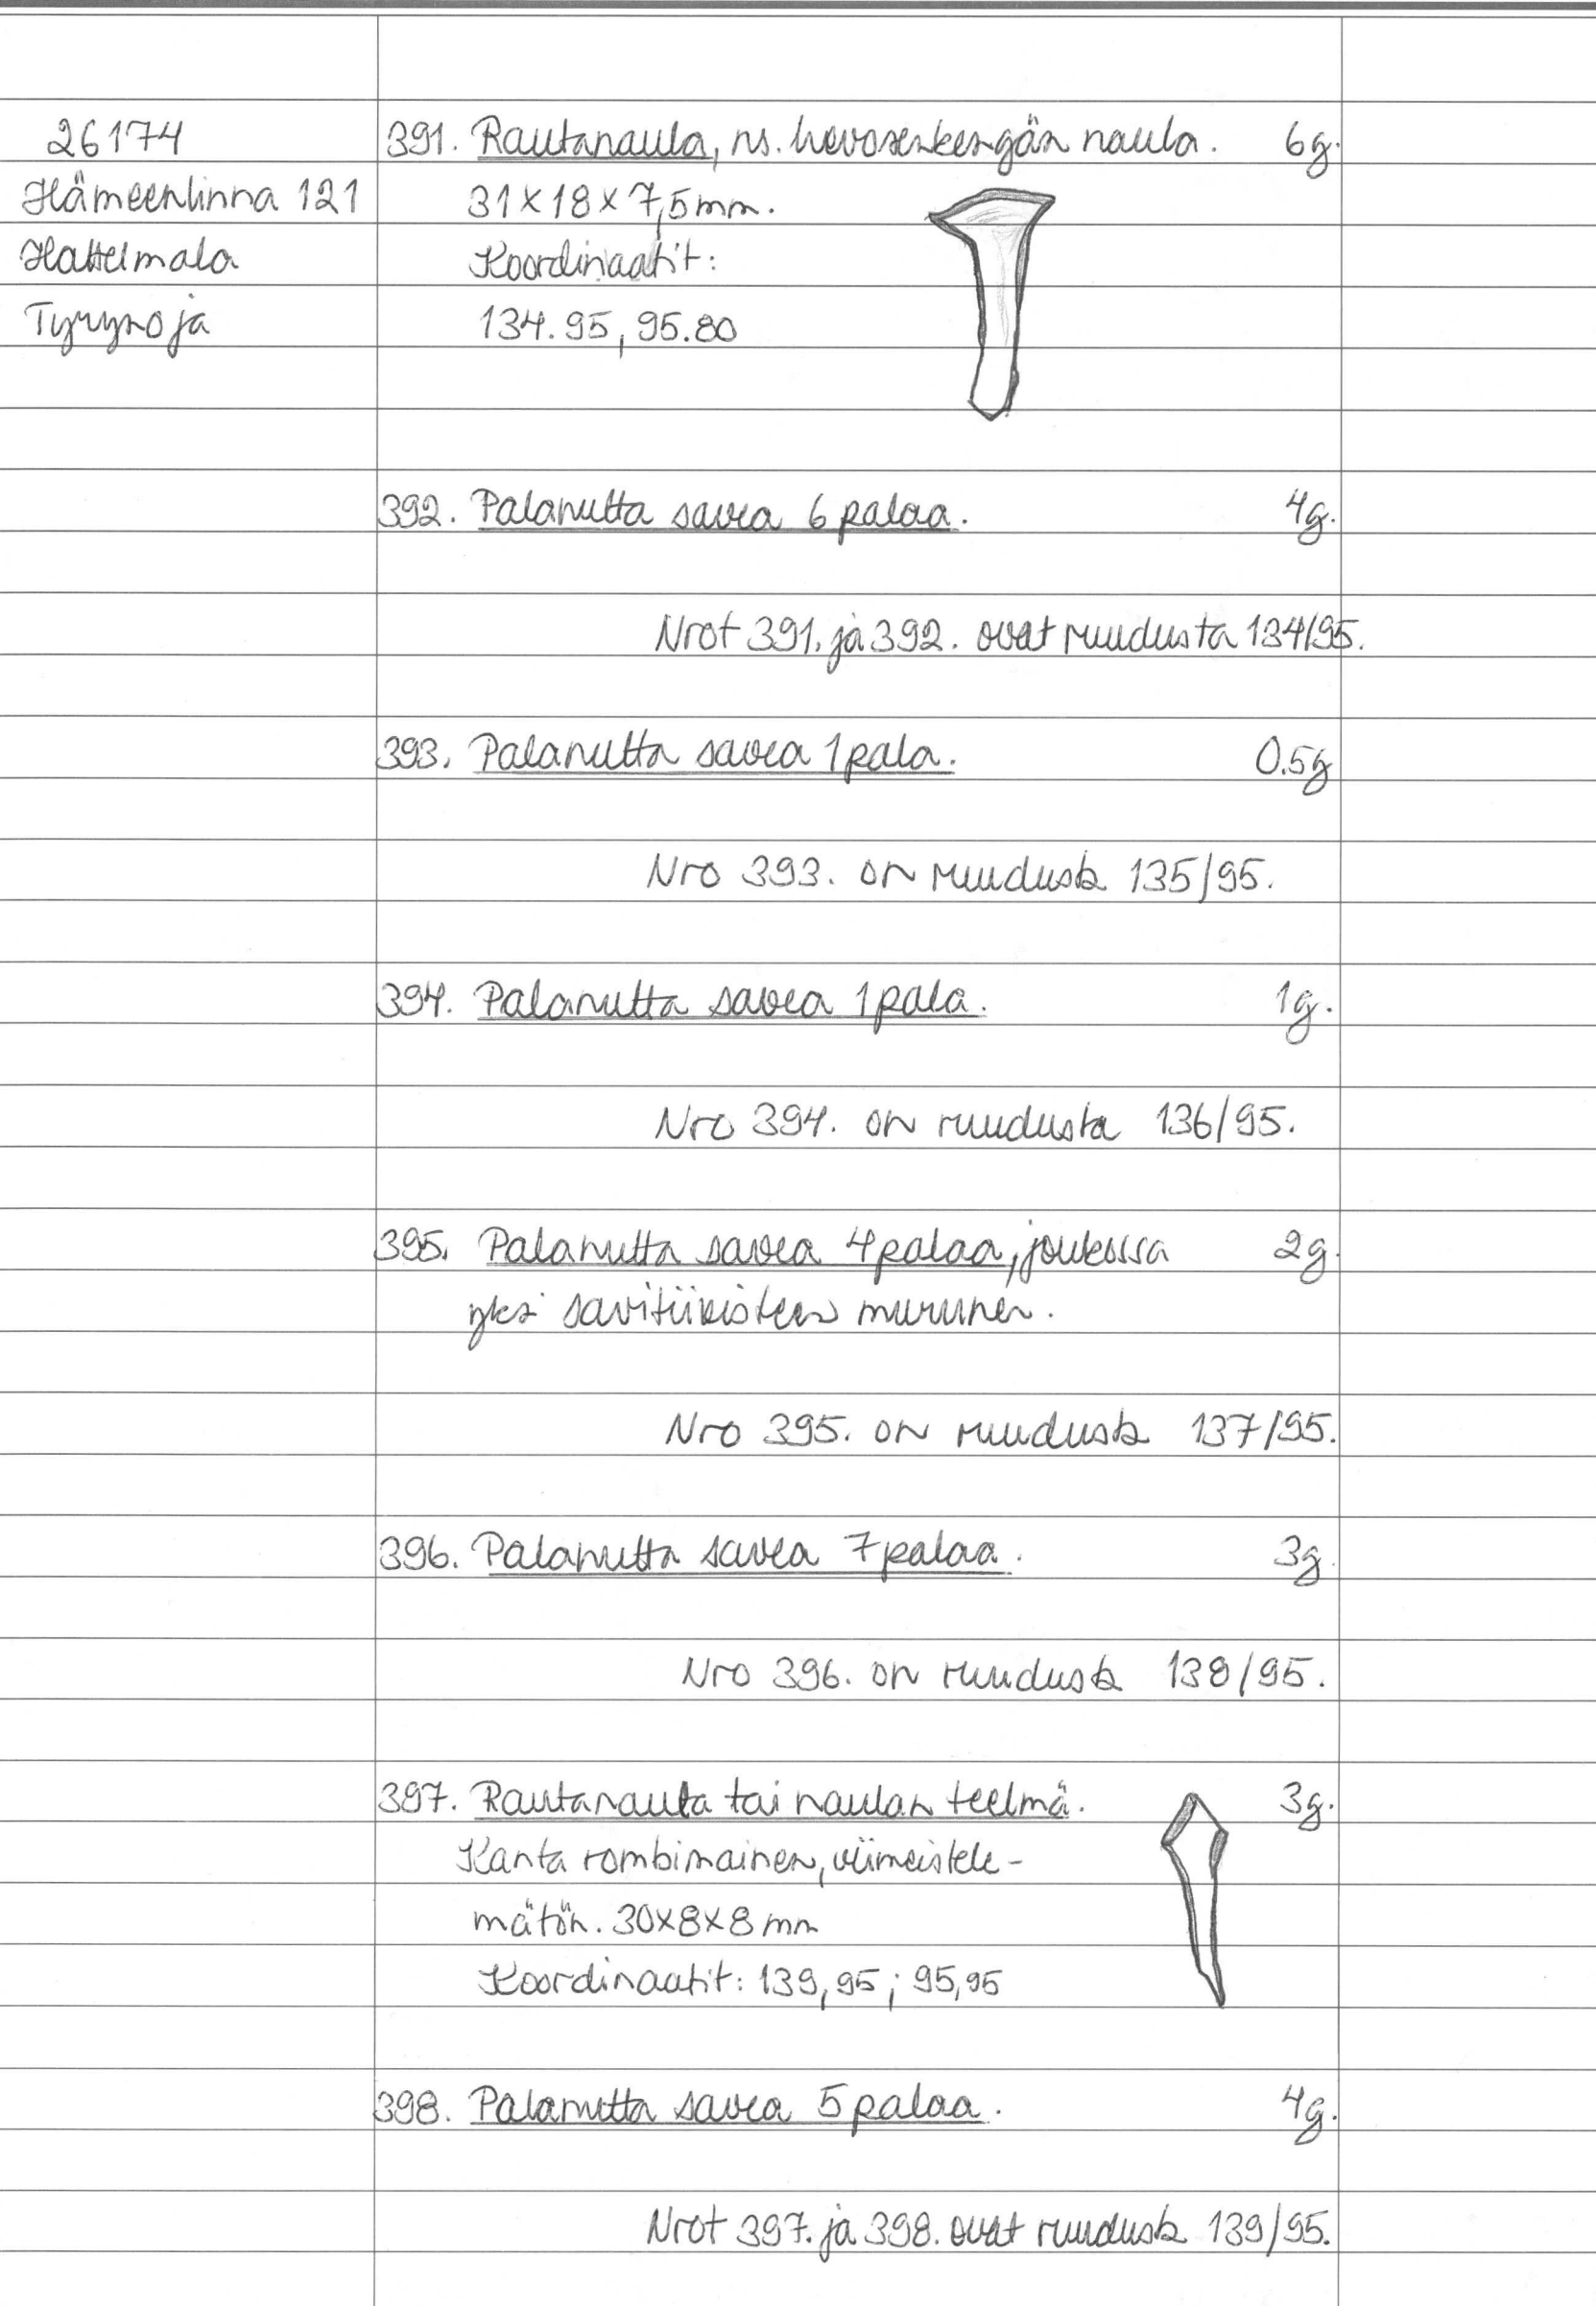 26174
Hämeenlinna 121
Hattelmala
Tyrynoja
391. Rautanaula, ns. hevosenkengän naula. 6g.
31x18x7,5mm.
Koordinaatit:
134.95, 95.80
392. Palanutta savea 6 palaa. 4g.
Nrot 391. ja 392. ovat ruudusta 134/95.
393. Palanutta savea 1 pala. 0.5g
Nro 393. on ruudusta 135/95.
394. Palanutta savea 1 pala. 1g.
Nro 394. on ruudusta 136/95.
395. Palanutta savea 4 palaa, joukossa 2g.
yksi savitiivisteen murunen.
Nro 395. on ruudusta 137/95.
396. Palanutta savea 7 palaa. 3g.
Nro 396. on ruudusta 138/95.
397. Rautanaula tai naulan teelmä. 3g.
Kanta rombimainen, viimeistele-
mätön. 30x8x8 mm
Koordinaatit: 139,95; 95,95
398. Palanutta savea 5 palaa. 4g.
Nrot 397. ja 398. ovat ruudusta 139/95.